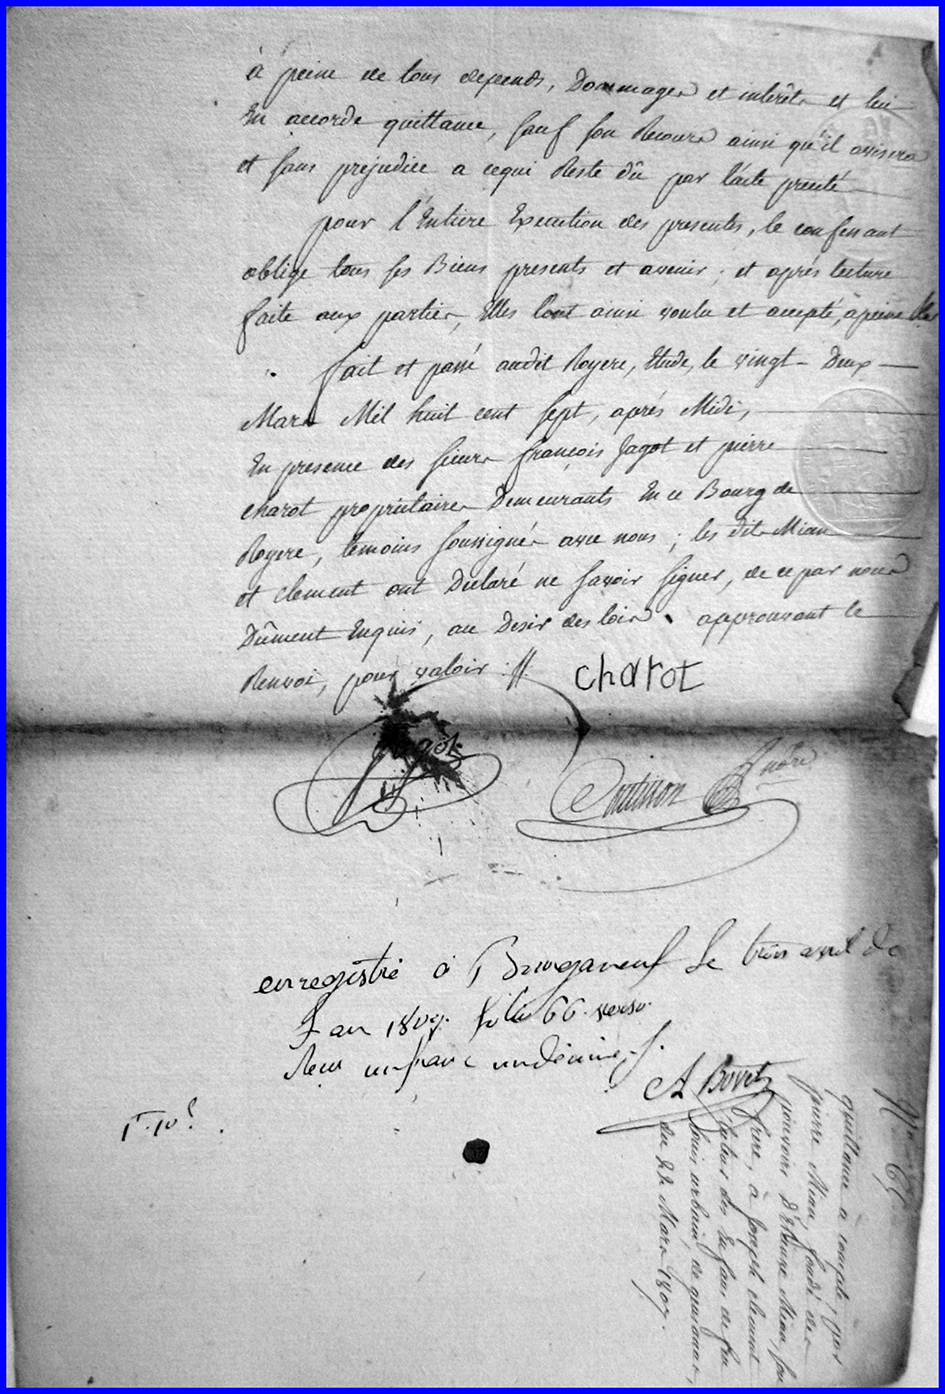 à peine de tous depends, Dommages et interêts et lui
En accorde quittance, sauf son Recours ainsi qu'il avisera
et sans prejudice a cequi Reste dû par l'acte precité
pour l'Entiere Execution des presentes, le confessant
oblige tous ses Biens presents et avenir; et aprés lecture
faite aux parties, Elles l'ont ainsi voulu et accepté, apeine
fait et passé audit Royere, Etude, le vingt-Deux
Mars Mil huit cent sept, aprés Midi,
En presence des sieurs françois Jagot et pierre
charot propriétaires Demeurants En ce Bourg de
Royere, temoins soussignés avec nous; les dits Mian
et Clement ont Déclaré ne savoir signer, de ce par nous
Dûment Enquis, au Desir des lois. approuvant le
Renvoi, pour valoir
charot
Jagot
Coutisson André
enregistré à Bourganeuf Le trois avril de
L'an 1807. folio 66 verso.
Reçu un franc un décime
A Bovet
1f.10c.
quittance à compte, par
pierre Mian, fondé de
pouvoirs d'Etienne Mian, son
frere, à Joseph clement
tuteur des Enfans de feu
du 22 Mars 1807.